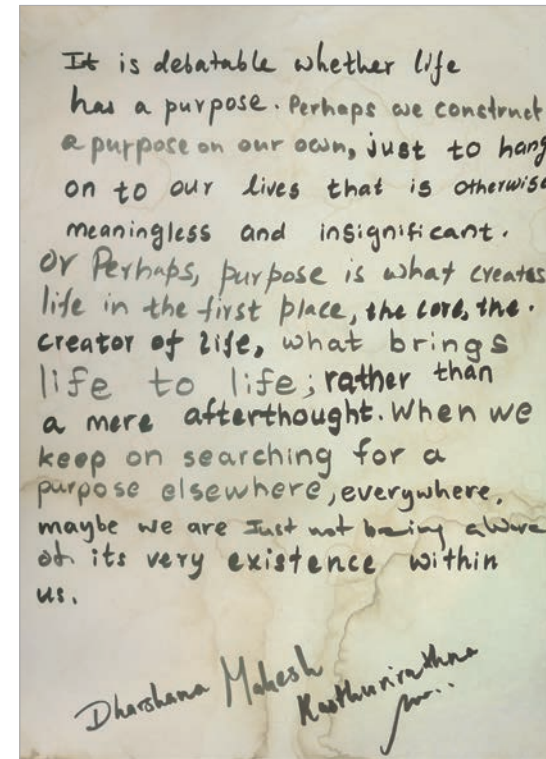 It is debatable whether life
has a purpose. Perhaps we construct
a purpose on our own, just to hang
on to our lives that is otherwise
meaningless and insignificant.
Or Perhaps, purpose is what creates
life in the first place, the lord, the.
creator of life, what brings
life to life; rather than
a mere afterthought. When we
keep on searching for a
purpose elsewhere, everywhere,
maybe we are Just not being aware
of its very existence within
us.
Dharshana Mahesh
Kasthurirathna